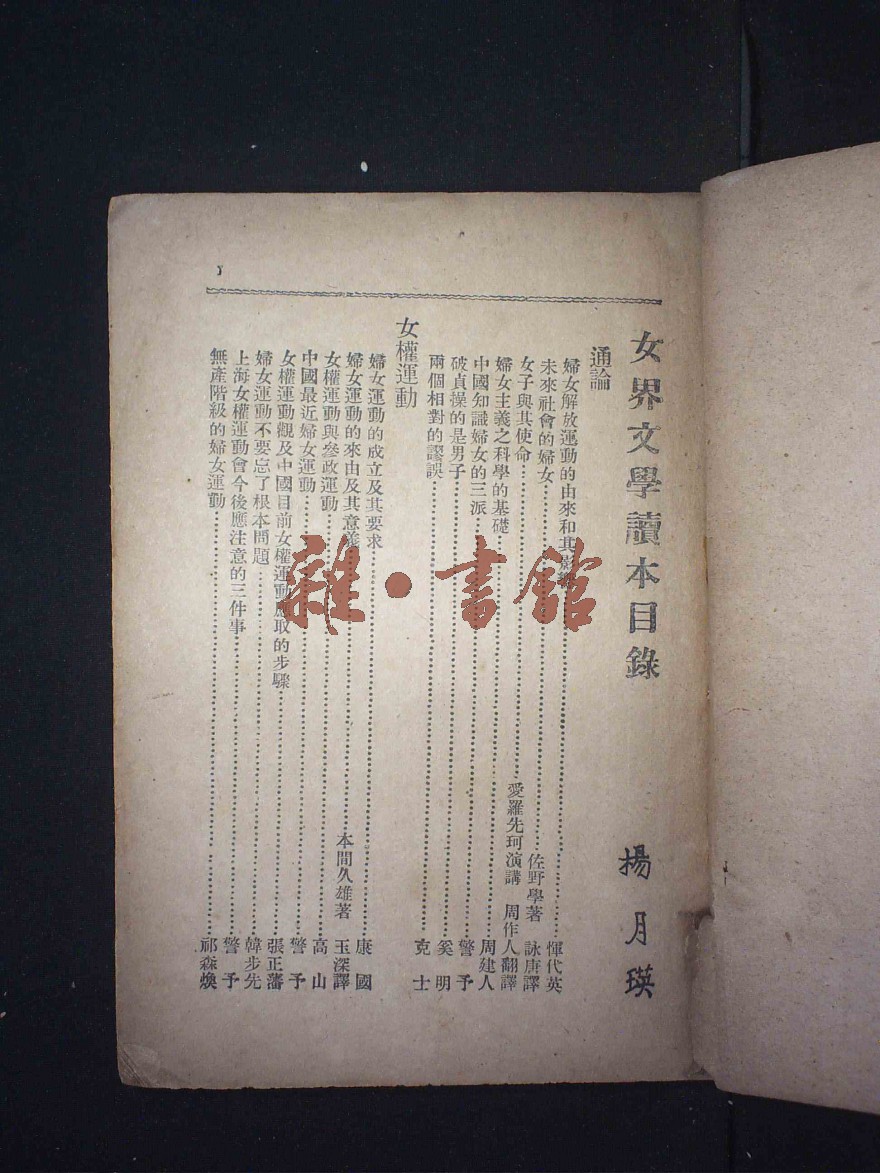 女界文學讀本目錄
楊月瑛
通論
婦女解放運動的由來和其影響 惲代英
未來社會的婦女 佐野學著 詠唐譯
女子與其使命 愛羅先珂演講 周作人翻譯
婦女主義之科學的基礎 周建人
中國知識婦女的三派 警予
破貞操的是男子 奚明
兩個相對的謬誤 克士
女權運動
婦女運動的成立及其要求 康國
婦女運動的來由及其意義 本間久雄著 玉深譯
女權運動與參政運動 高山
中國最近婦女運動 警予
女權運動觀及中國目前女權運動應取的步驟 張正藩
婦女運動不要忘了根本問題 韓步先
上海女權運動會今後應注意的三件事 警予
無產階級的婦女運動 祁森煥
1
雜·書館